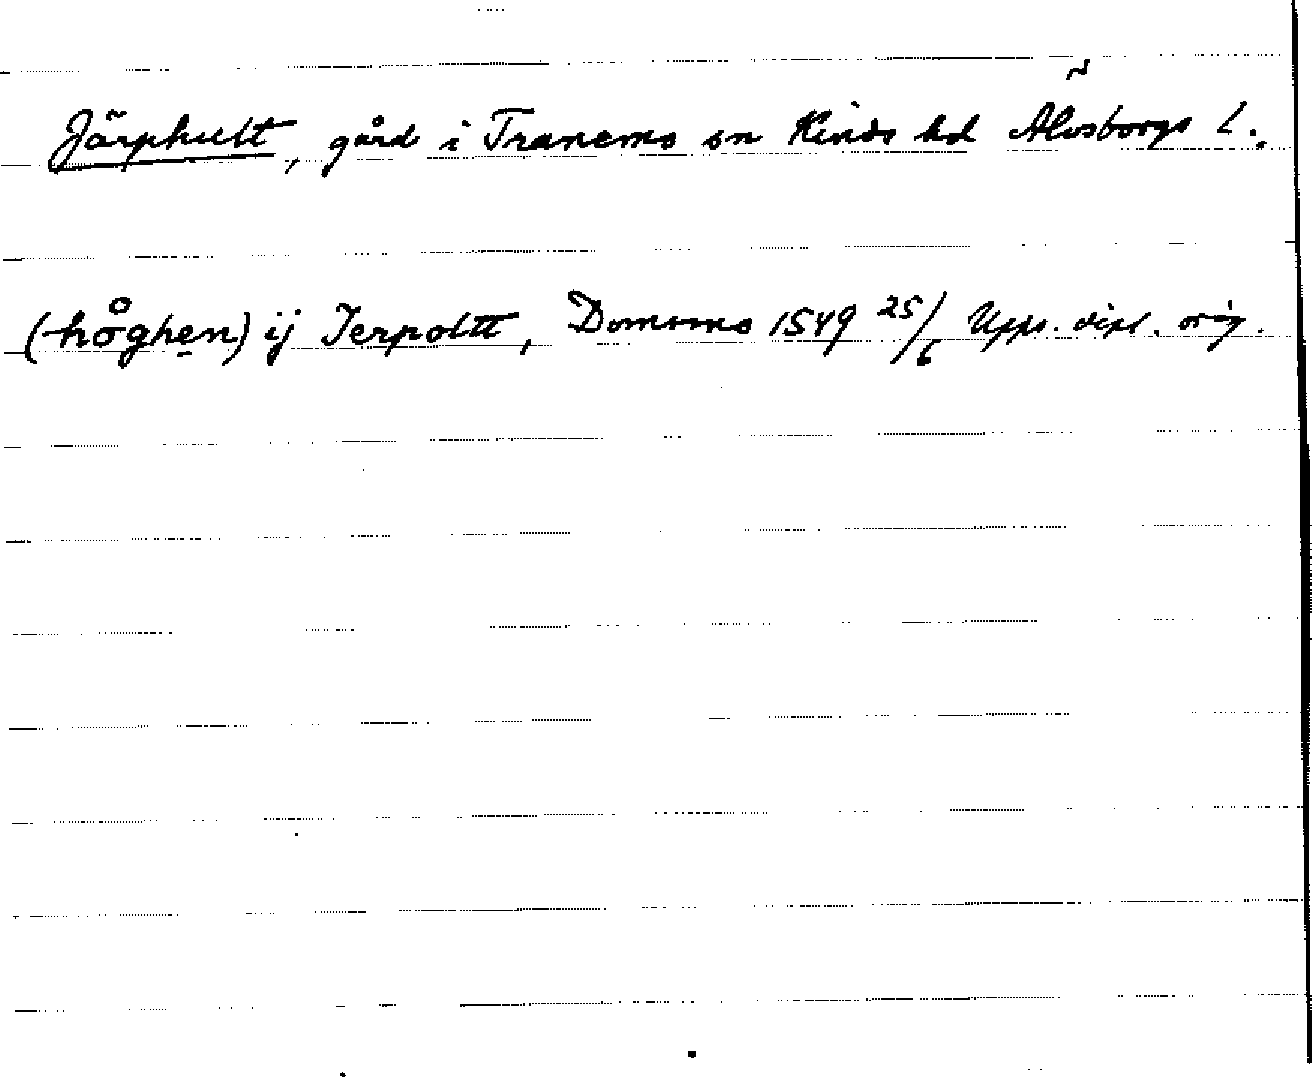 Järphult, gård i Tranemo sn Kinds hd Älvsborgs l.
(håghen) ij Jerpoltt, Domsmo 1549 25/6 Upps. dipl. orig.